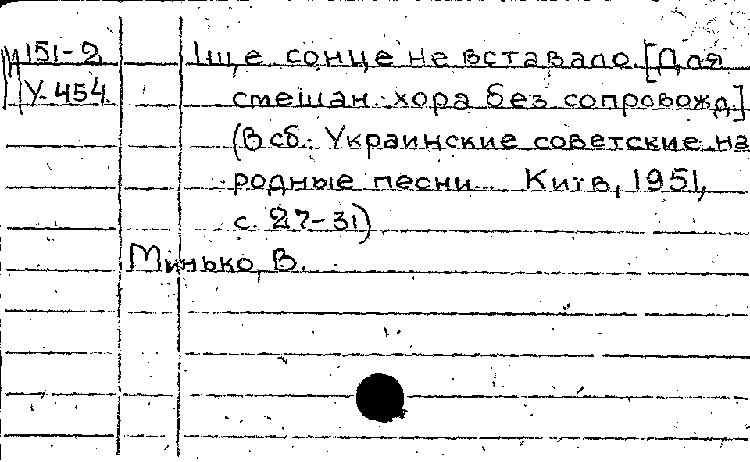 М 151-2 Іще сонце не вставало. [Для
У-454 смешан. хора без сопровожд.]
(В сб.: Украинские советские на
родные песни. Київ, 1951,
с. 27-31)
Минько, В.